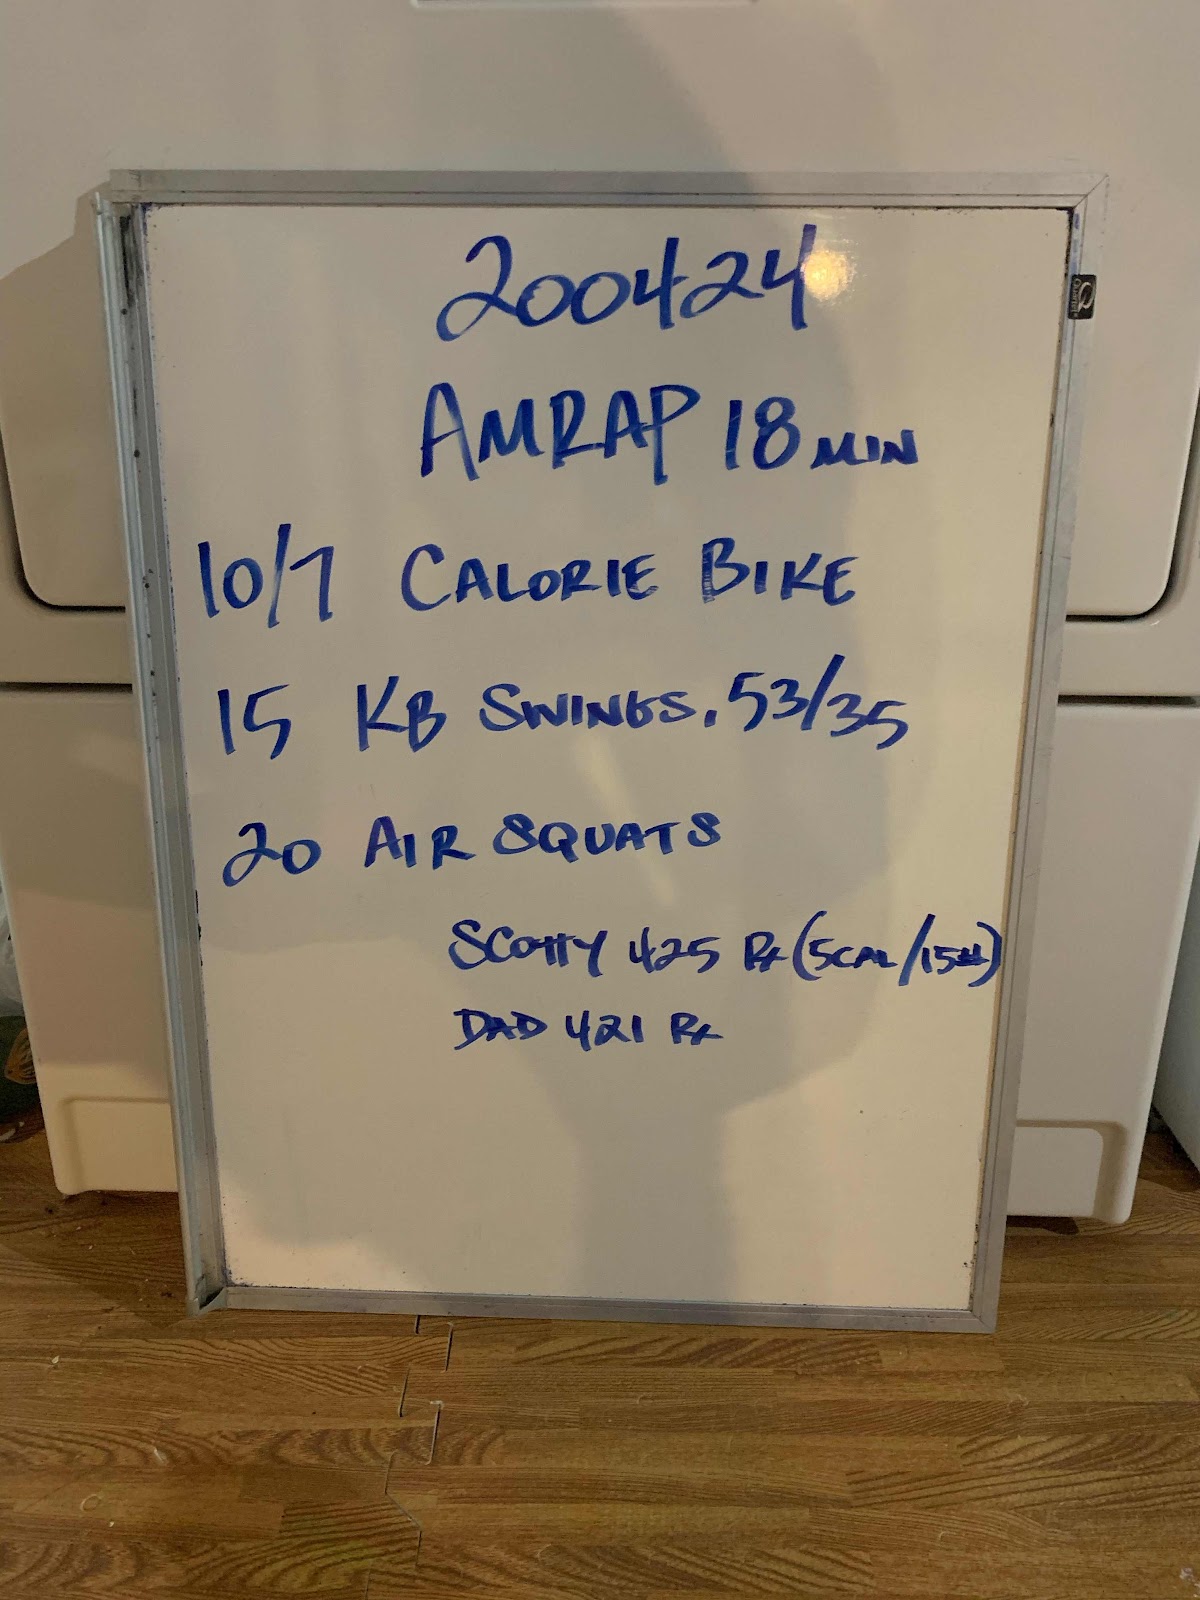 200424
AMRAP 18 MIN
10/7 CALORIE BIKE
15 KB SWINGS. 53/35
20 AIR SQUATS
SCOTTY 425 Rx (5CAL/15#)
DAD 421 Rx
Quartet